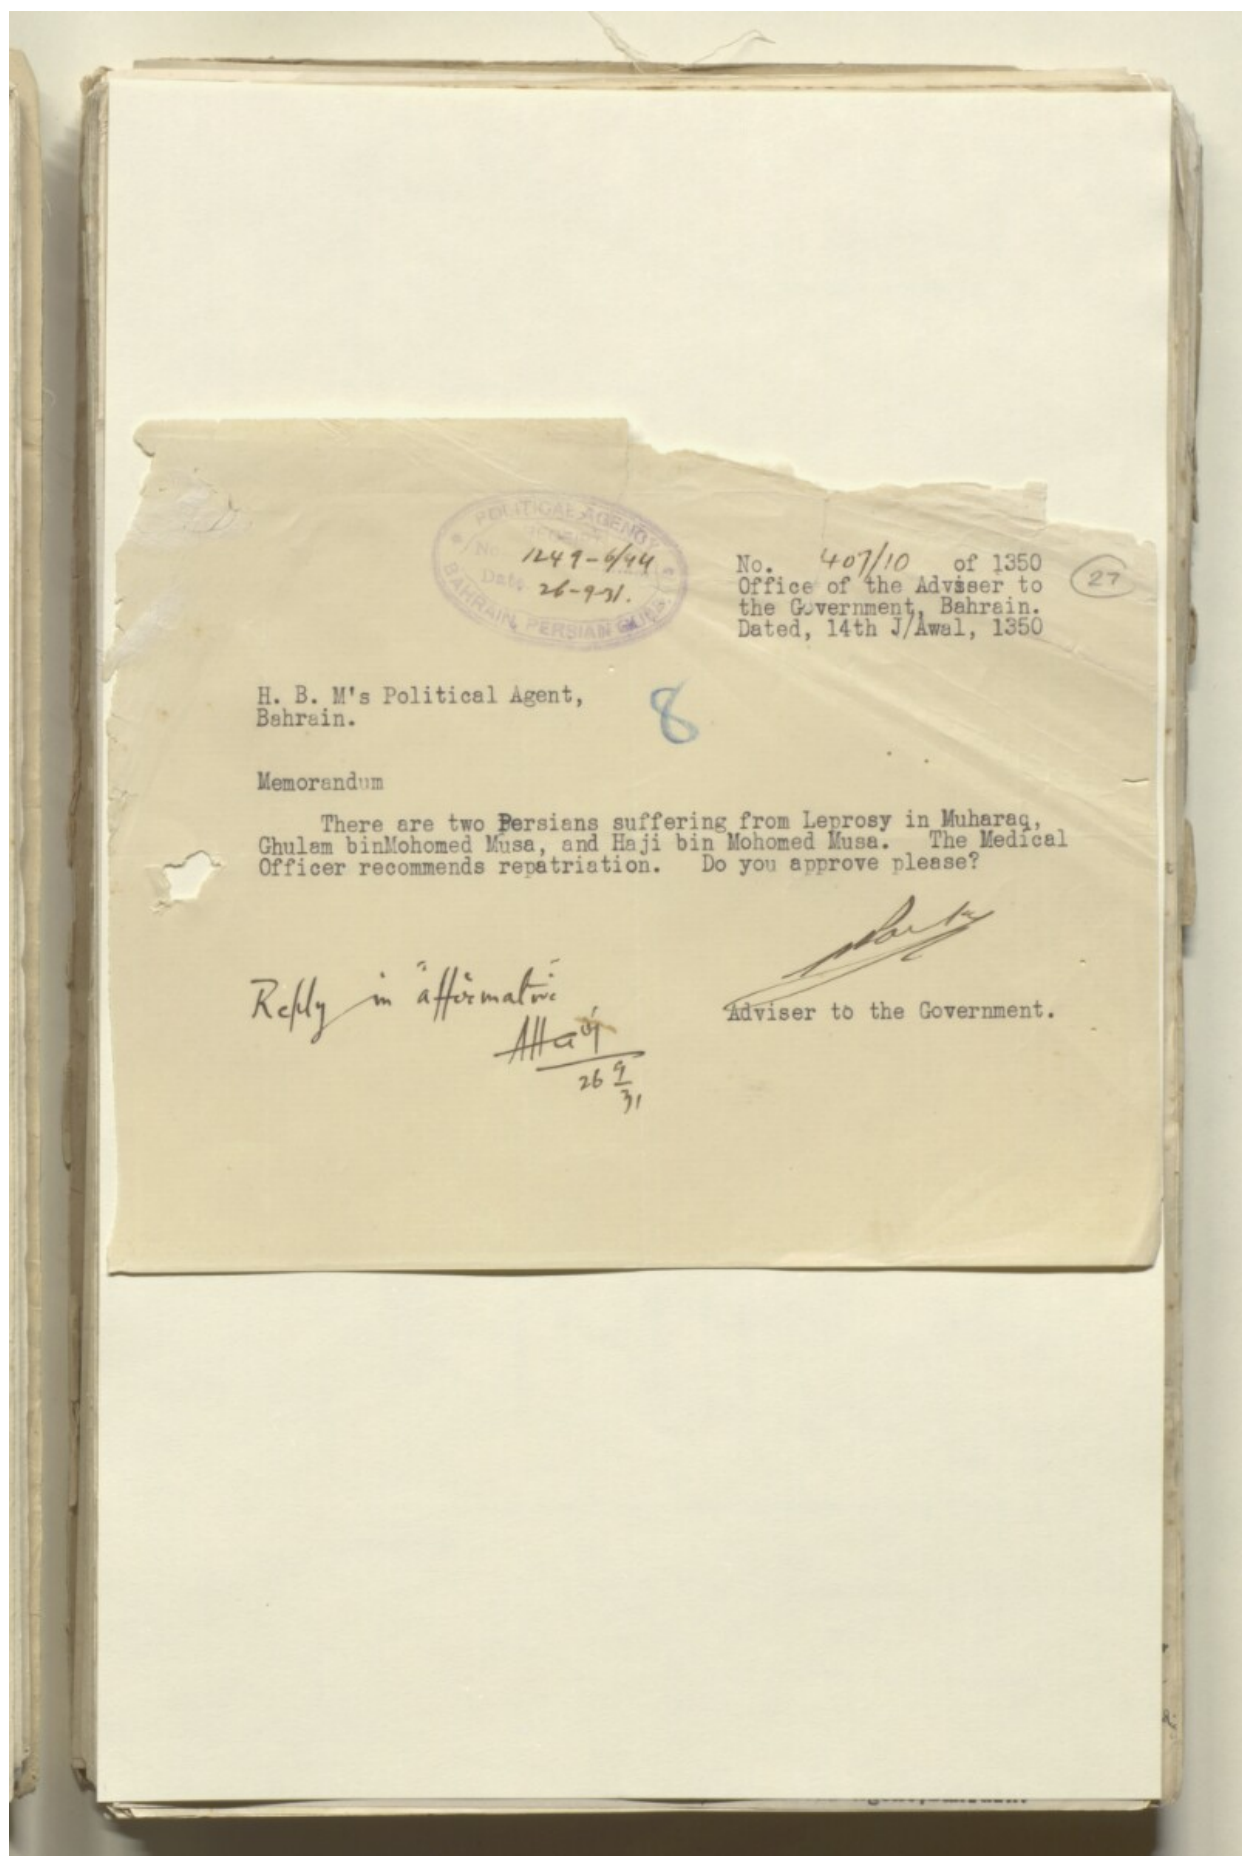 POLITICAL AGENCY
No. 1249-6/44
Date 26-9-31.
BAHRAIN, PERSIAN GULF
No. 407/10 of 1350
27
Office of the Adviser to
the Government, Bahrain.
Dated, 14th J/Awal, 1350
H. B. M's Political Agent,
Bahrain.
8
Memorandum
There are two Persians suffering from Leprosy in Muharaq,
Ghulam binMohomed Musa, and Haji bin Mohomed Musa. The Medical
Officer recommends repatriation. Do you approve please?
Reply in "affirmative"
26 9
31
Adviser to the Government.